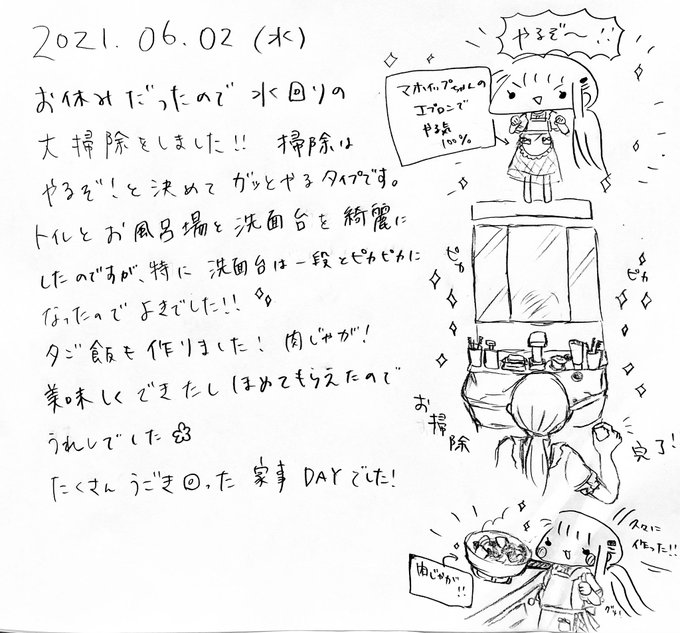 2021.06.02(水)
お休みだったので水回りの
大掃除をしました!! 掃除は
やるぞ!と決めてガッとやるタイプです。
トイレとお風呂場と洗面台を綺麗に
したのですが、特に洗面台は一段とピカピカに
なったのでよきでした!!
夕ご飯も作りました! 肉じゃが!
美味しくできたしほめてもらえたので
うれしでした
たくさんうごき回った家事DAYでした!
やるぞ〜!!
マホイップちゃんの
エプロンで
やる気
100%
ピカ
ピカ
お掃除
完了!
肉じゃが!!
久々に
作った!!
グッ!